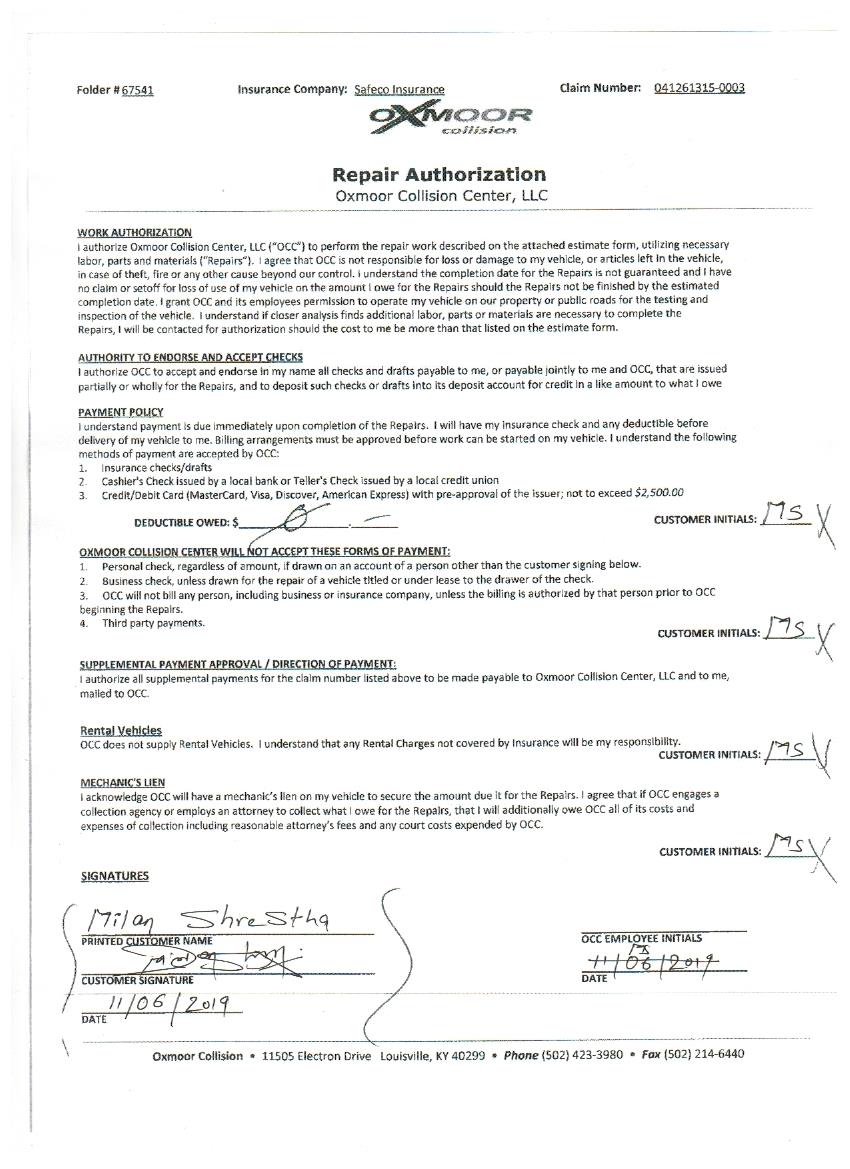 Folder # 67541 Insurance Company: Safeco Insurance Claim Number: 041261315-0003
OXMOOR
collision
Repair Authorization
Oxmoor Collision Center, LLC
WORK AUTHORIZATION
I authorize Oxmoor Collision Center, LLC ("OCC") to perform the repair work described on the attached estimate form, utilizing necessary
labor, parts and materials ("Repairs"). I agree that OCC is not responsible for loss or damage to my vehicle, or articles left in the vehicle,
in case of theft, fire or any other cause beyond our control. I understand the completion date for the Repairs is not guaranteed and I have
no claim or setoff for loss of use of my vehicle on the amount I owe for the Repairs should the Repairs not be finished by the estimated
completion date. I grant OCC and its employees permission to operate my vehicle on our property or public roads for the testing and
inspection of the vehicle. I understand if closer analysis finds additional labor, parts or materials are necessary to complete the
Repairs, I will be contacted for authorization should the cost to me be more than that listed on the estimate form.
AUTHORITY TO ENDORSE AND ACCEPT CHECKS
I authorize OCC to accept and endorse in my name all checks and drafts payable to me, or payable jointly to me and OCC, that are issued
partially or wholly for the Repairs, and to deposit such checks or drafts into its deposit account for credit in a like amount to what I owe
PAYMENT POLICY
I understand payment is due immediately upon completion of the Repairs. I will have my insurance check and any deductible before
delivery of my vehicle to me. Billing arrangements must be approved before work can be started on my vehicle. I understand the following
methods of payment are accepted by OCC:
1. Insurance checks/drafts
2. Cashier's Check issued by a local bank or Teller's Check issued by a local credit union
3. Credit/Debit Card (MasterCard, Visa, Discover, American Express) with pre-approval of the issuer; not to exceed $2,500.00
DEDUCTIBLE OWED: $ 0 . — CUSTOMER INITIALS: MS X
OXMOOR COLLISION CENTER WILL NOT ACCEPT THESE FORMS OF PAYMENT:
1. Personal check, regardless of amount, if drawn on an account of a person other than the customer signing below.
2. Business check, unless drawn for the repair of a vehicle titled or under lease to the drawer of the check.
3. OCC will not bill any person, including business or insurance company, unless the billing is authorized by that person prior to OCC
beginning the Repairs.
4. Third party payments.
CUSTOMER INITIALS: MS X
SUPPLEMENTAL PAYMENT APPROVAL / DIRECTION OF PAYMENT:
I authorize all supplemental payments for the claim number listed above to be made payable to Oxmoor Collision Center, LLC and to me,
mailed to OCC.
Rental Vehicles
OCC does not supply Rental Vehicles. I understand that any Rental Charges not covered by Insurance will be my responsibility.
CUSTOMER INITIALS: MS X
MECHANIC'S LIEN
I acknowledge OCC will have a mechanic's lien on my vehicle to secure the amount due it for the Repairs. I agree that if OCC engages a
collection agency or employs an attorney to collect what I owe for the Repairs, that I will additionally owe OCC all of its costs and
expenses of collection including reasonable attorney's fees and any court costs expended by OCC.
CUSTOMER INITIALS: MS X
SIGNATURES
Milan Shrestha
PRINTED CUSTOMER NAME OCC EMPLOYEE INITIALS
11/06/2019
CUSTOMER SIGNATURE DATE
11/06/2019
DATE
Oxmoor Collision • 11505 Electron Drive Louisville, KY 40299 • Phone (502) 423-3980 • Fax (502) 214-6440